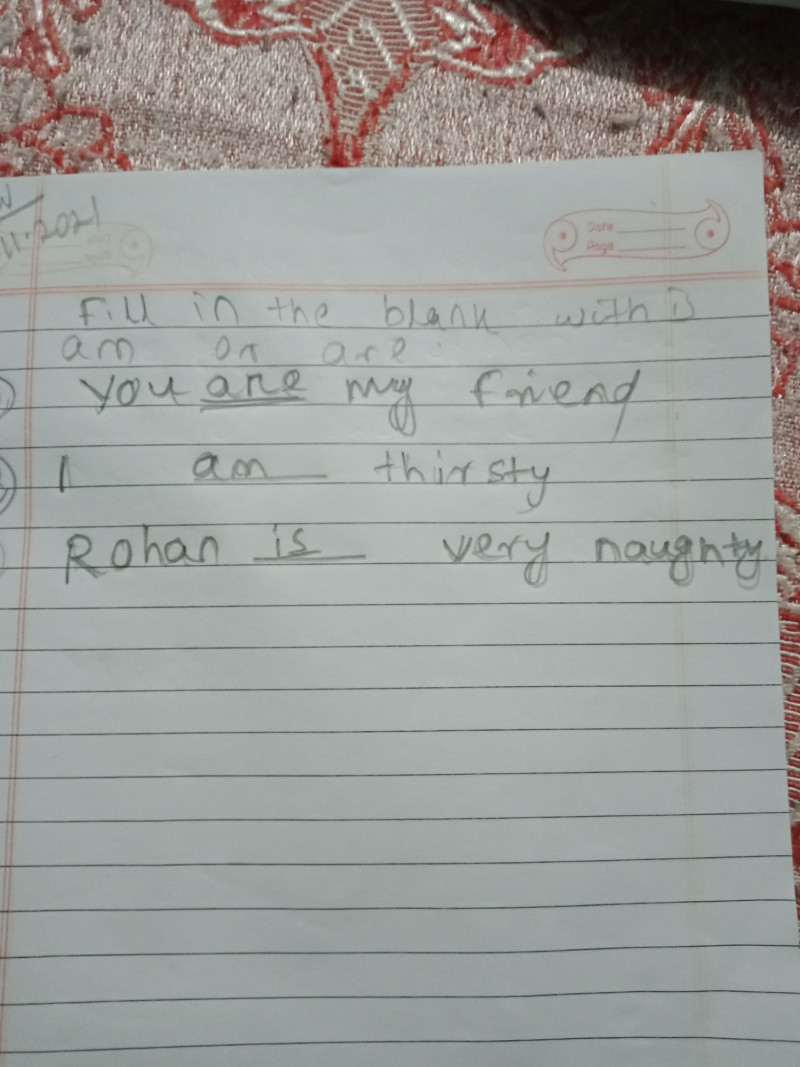 11.2021
Date
Page
Fill in the blank with is
am or are.
you are my friend
I am thirsty
Rohan is very naughty